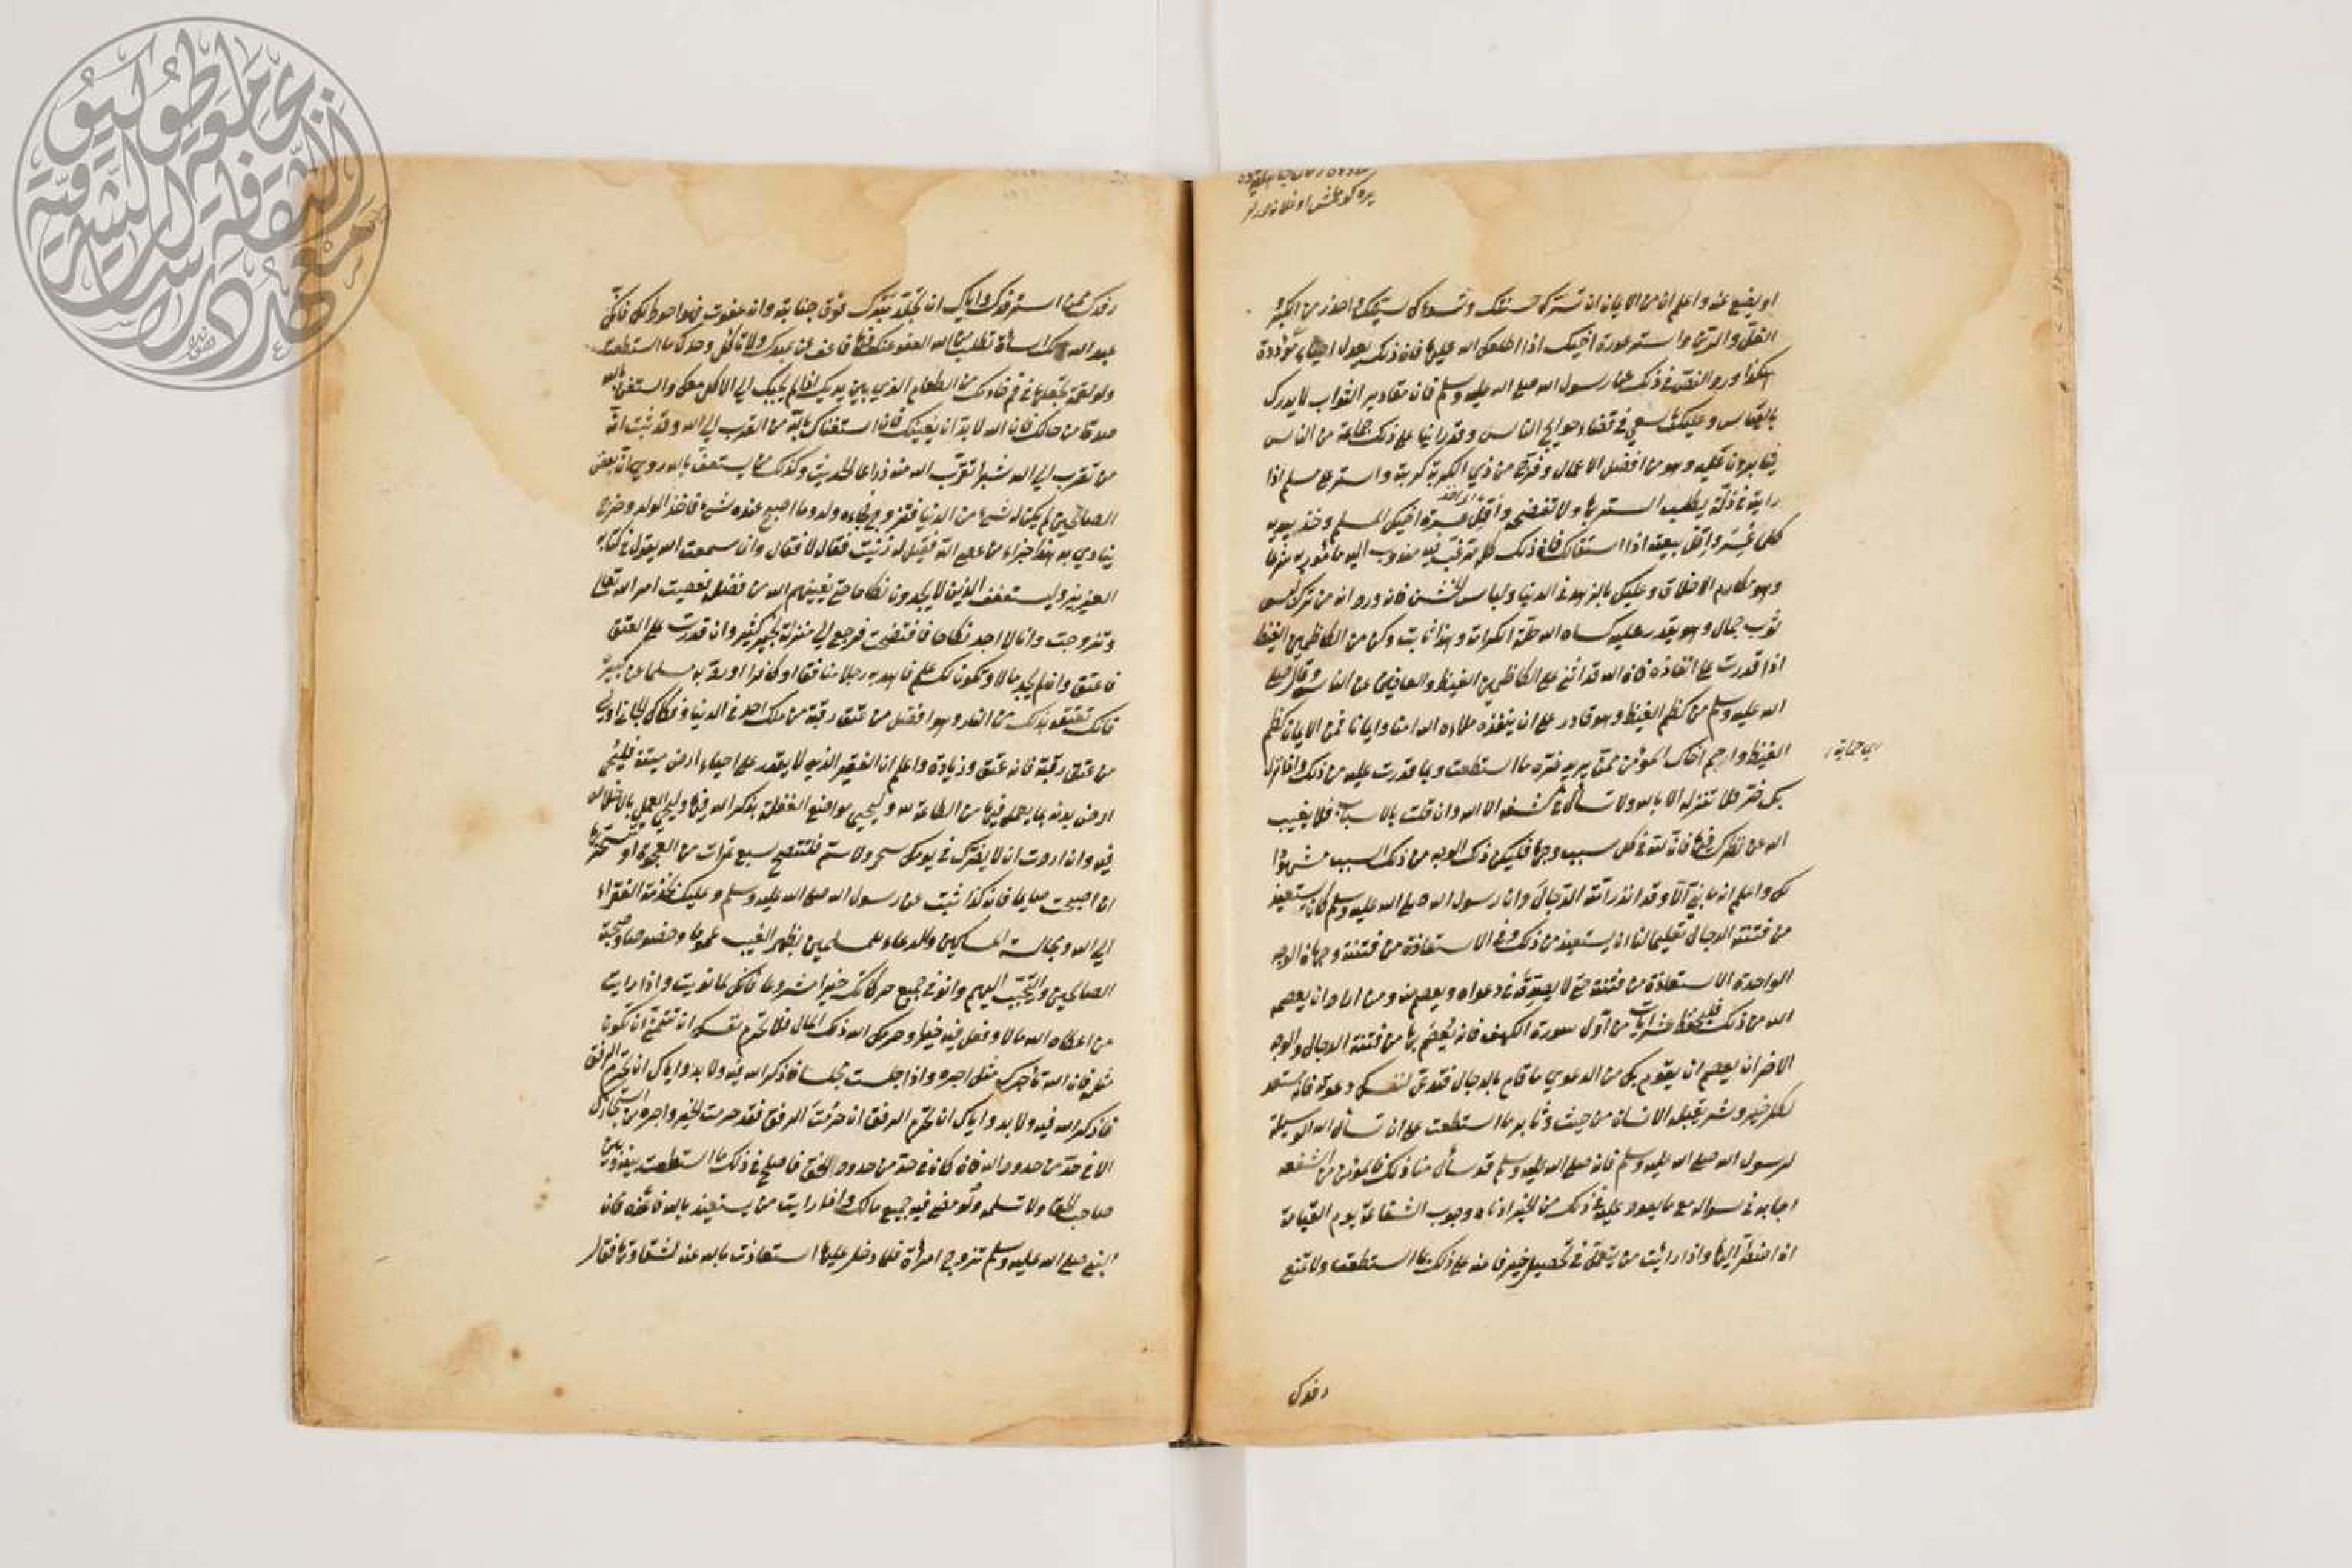 او يضيع عنه واعلم ان من الايمان ان تسرك حسنتك وتسوءك سيئتك واحذر من الكبر و
الغل والرين واستر عورة اخيك اذا اطلعك الله عليها فان ذلك يعدل احياء موؤدة
هكذا ورد النص في ذلك عن رسول الله صلى الله عليه وسلم فان مقادير الثواب لا يدرك
بالقياس وعليك بالسعي في قضاء حوائج الناس وقد راينا على ذلك جماعة من الناس
يثابرون عليه وهو من افضل الاعمال وفرج من ذي الكربة كربة واستر على مسلم اذا
رايته في زلة يطلب الستر بها ولا تفضحه واقل عثرة اخيك المسلم وخذ بيده
كلما عثر واقله بيعته اذا استقالك فان ذلك كله مرغب فيه مندوب اليه مامور به شرعا
وهو مكارم الاخلاق وعليك بالزهد في الدنيا ولباس الخشن فانه ورد انه من ترك لبس
ثوب جمال وهو يقدر عليه كساه الله حلة الكرامة وهذا ثابت وكن من الكاظمين الغيظ
اذا قدرت على انفاذه فان الله قد اثنى على الكاظمين الغيظ والعافين عن الناس وقال صلى
الله عليه وسلم من كظم الغيظ وهو قادر على ان ينفذه ملاءه الله امنا وايمانا فمن الايمان كظم
الغيظ وارحم اخاك المؤمن ممن يريد ضره ما استطعت وبما قدرت عليه من ذلك واذا نزل
بك ضر فلا تنزله الا بالله ولا تسال في كشفه الا الله وان قلت بالاسباب فلا يغيب
الله عن نظرك فيها فان لله في كل سبب وجها فليكن ذلك الوجه من ذلك السبب مشهودا
لك واعلم انه ما نبي الا وقد انذر امته الدجال وان رسول الله صلى الله عليه وسلم كان يستعيذ
من فتنة الدجال تعليما لنا ان يستعيذ من ذلك وفي الاستعاذة من فتنته وجهان الوجه
الواحد الاستعاذة من فتنته حتى لا يصدقه في دعواه ويعصم منه ومن اراد ان يعصمه
الله من ذلك فليحفظ عشر ايات من اول سورة الكهف فانه يعصم بها من فتنة الدجال والوجه
الاخر ان يعصم ان يقوم بك من الدعوى ما قام بالدجال فتدعي لنفسك دعوته فانك مستعد
لكل خير وشر يقبله الانسان من حيث وثابر ما استطعت على ان تسال الله الوسيلة
لرسول الله صلى الله عليه وسلم فانه صلى الله عليه وسلم قد سال منا ذلك فالمؤمن من اسعفه
اجابه في سواله مع ما يعود عليه في ذلك من الخير ادناه وجوب الشفاعة يوم القيامة
اذا اضطر اليها واذا رايت من يتعمل في تحصيل خير فاعنه على ذلك بما استطعت ولا تمنع
رفدك
رفدك ممن استرفدك واياك ان تجلد عبدك فوق جنايته وان عفوت فهو احوط لك فانك
عبد الله ولك اساءة تطلب من الله العفو عنك فيها فاعف عن عبدك ولا تاكل وحدك ما استطعت
ولو لقمة تجعلها في فم خادمك من الطعام الذي بين يديك اذا لم يجبك الى الاكل معك واستغن بالله
صدقا من حالك فان الله لا بد ان يغنيك فان استغناك بالله من القرب الى الله وقد ثبت انه
من تقرب الى الله شبرا تقرب الله منه ذراعا الحديث وكذلك من يستعف بالله روي ان بعض
الصالحين لم يكن له شيء من الدنيا فتزوج فجاءه ولد وما اصبح عنده شيء فاخذ الولد وخرج
ينادي به هذا جزاء من عصى الله فقيل له زنيت فقال لا فقال وانما سمعت الله يقول في كتابه
العزيز وليستعفف الذين لا يجدون نكاحا حتى يغنيهم الله من فضله فعصيت امر الله تعالى
وتزوجت وانا لا اجد نكاحا فافتضحت فرجع الى منزله بخير كثير وان قدرت على العتق
فاعتق وان لم تجد مالا وتكون لك علم فاهد به رجلا منافقا او كافرا او رد به مسلما عن كبيرة
فانك تعتقه بذلك من النار وهو افضل من عتق رقبة من ملك احد في الدنيا وفكاك العاني اولى
من عتق رقبة فانه عتق وزيادة واعلم ان الفقير الذي لا يقدر على احياء ارض ميتة فليحي
ارض بدنه بما يعمله فيها من الطاعة لله وليحي مواضع الغفلة بذكر الله فيها وليحي العمل بالاخلاص
فيه وان اردت ان لا يضرك في يومك سحر ولا سم فلتتصبح سبع تمرات من العجوة او تتسحر بها
ان اصبحت صايما فانه كذا ثبت عن رسول الله صلى الله عليه وسلم وعليك بخدمة الفقراء
الى الله ومجالسة المساكين والدعاء للمسلمين بظهر الغيب عموما وخصوصا وصحبة
الصالحين والتحبب اليهم وانو في جميع حركاتك خيرا مشروعا فانك لما نويت واذا رايت
من اعطاه الله مالا وفعل فيه خيرا وحرمك الله ذلك المال فلا تحرم نفسك ان تتمنى ان تكون
مثله فان الله ياجرك مثل اجره واذا جلست مجلسا فاذكر الله فيه ولا بد واياك ان تحرم الرفق
فاذكر الله فيه ولا بد واياك ان تحرم الرفق ان حرمت الرفق فقد حرمت الخير واجره من استجارك
الا في حد من حدود الله فان كان في حد من حدود الخلق فاصلح في ذلك ما استطعت بينه وبين
صاحب الحق ولا تسلمه ولو مضى فيه جميع مالك واذا رايت من يستعيذ بالله فاعذه فان
النبي صلى الله عليه وسلم تزوج امراة فلما دخل عليها استعاذت بالله منه لشقاوتها فقال